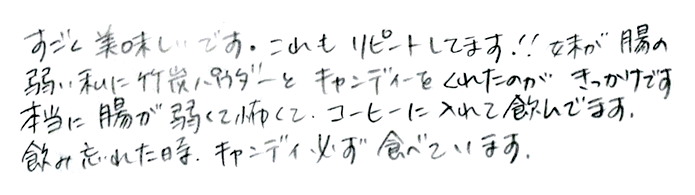 すごく美味しいです。これもリピートしてます!!妹が腸の
弱い私に竹炭パウダーとキャンディーをくれたのがきっかけです
本当に腸が弱くて怖くて、コーヒーに入れて飲んでます。
飲み忘れた時、キャンディ必ず食べています。